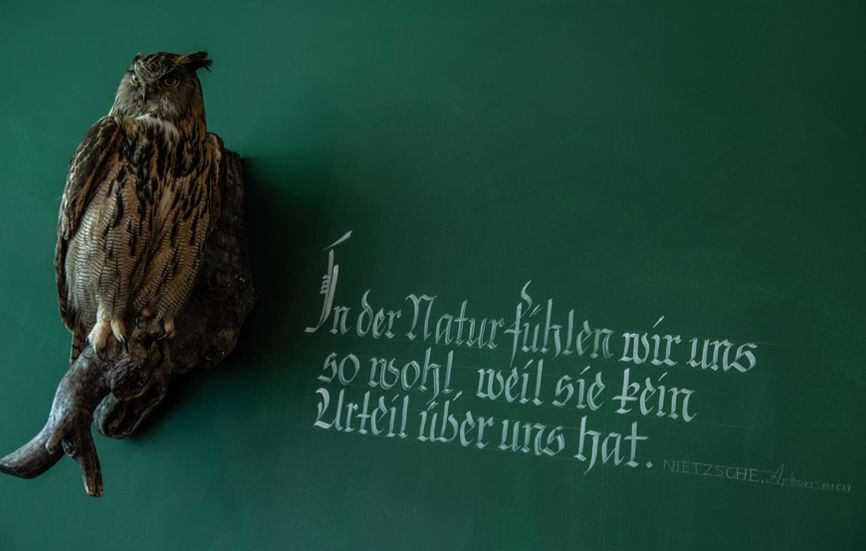 In der Natur fühlen wir uns
so wohl weil sie kein
Urteil über uns hat.
NIETZSCHE, Aphorismen